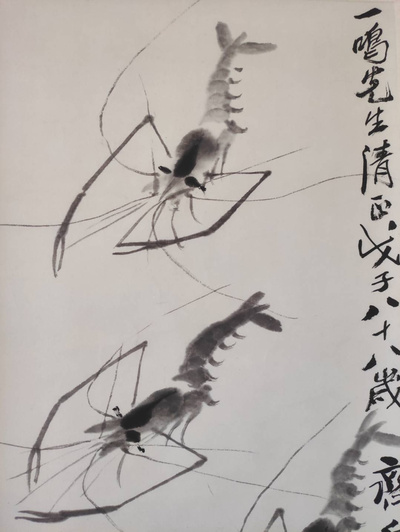 一鳴先生清正戊子八十八歲 齊